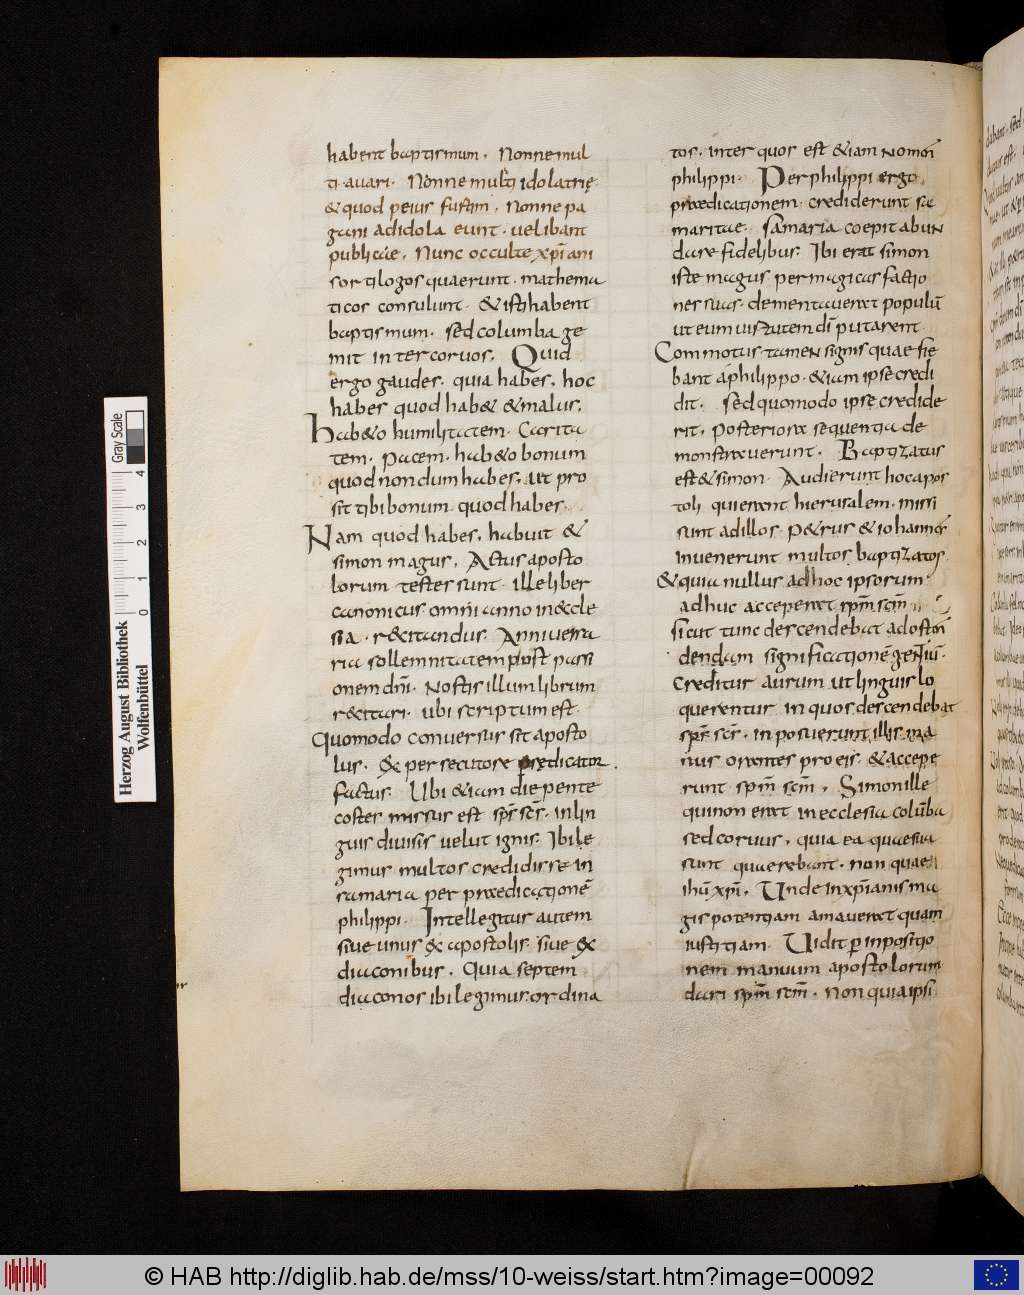 habent baptismum. Nonne mul
ti avari. Nonne multi idolatrie
& quod peius furtim. Nonne pa
gani ad idola eunt. vel ibant
publicae. Nunc occulte xp̄iani
sortilogos quaerunt. mathema
ticos consulunt. & isti habent
baptismum. sed columba ge
mit inter corvos. Quid
ergo gaudes. quia habes. hoc
habes quod hab& & malus.
hab&o humilitatem. Carita
tem. pacem. hab&o bonum
quod nondum habes. ut pro
sit tibi bonum quod habes.
Nam quod habes. habuit &
simon magus. Actus aposto
lorum testes sunt. ille liber
canonicus omni anno in eccle
sia. r&citandus. Anniversa
ria sollemnitatem post passi
onem dn̄i. Nostis illum librum
r&citari. ubi scriptum est.
Quomodo conversus sit aposto
lus. & ex persecutore praedicator.
factus. Ubi &iam die pente
costes missus est sp̄s sc̄s. in lin
guis divisis velut ignis. Ibi le
gimus multos credidisse in
samaria per praedicationē
philippi. Intellegitur autem
sive unus ex apostolis. sive ex
diaconibus. Quia septem
diaconos ibi legimus. ordina
tos. inter quos est &iam nomen
philippi. Per philippi ergo
praedicationem. crediderunt sa
maritae. samaria coepit abun
dare fidelibus. Ibi erat simon
iste magus per magicas factio
nes suas. dementaverat populū
ut eum virtutem dī putarent.
Commotus tamen signis quae fie
bant a philippo. &iam ipse credi
dit. Sed quomodo ipse credide
rit. posteriora sequentia de
monstraverunt. Baptizatus
est & simon. Audierunt hoc apos
toli qui erant hierusalem. missi
sunt ad illos. p&rus & iohannes
invenerunt multos baptizatos
& quia nullus adhoc ipsorum
adhuc acceperat sp̄m sc̄m
sicut tunc descendebat ad osten
dendam significationē gentiū.
Creditur aurum ut linguis lo
querentur in quos descendebat
sp̄s sc̄s. inposuerunt illis ma
nus orantes pro eis. & accepe
runt sp̄m sc̄m. Simon ille
qui non erat in ecclesia colūba
sed corvus. quia ea quae sua
sunt quaerebant. non quae
ihū xp̄i. Unde in xp̄ianis ma
gis potentiam amaverat quam
iustitiam. Vidit p inpositio
nem manuum apostolorum
dari sp̄m sc̄m. non quia ipsi
Herzog August Bibliothek
Wolfenbüttel
Gray Scale
0 1 2 3 4
© HAB http://diglib.hab.de/mss/10-weiss/start.htm?image=00092